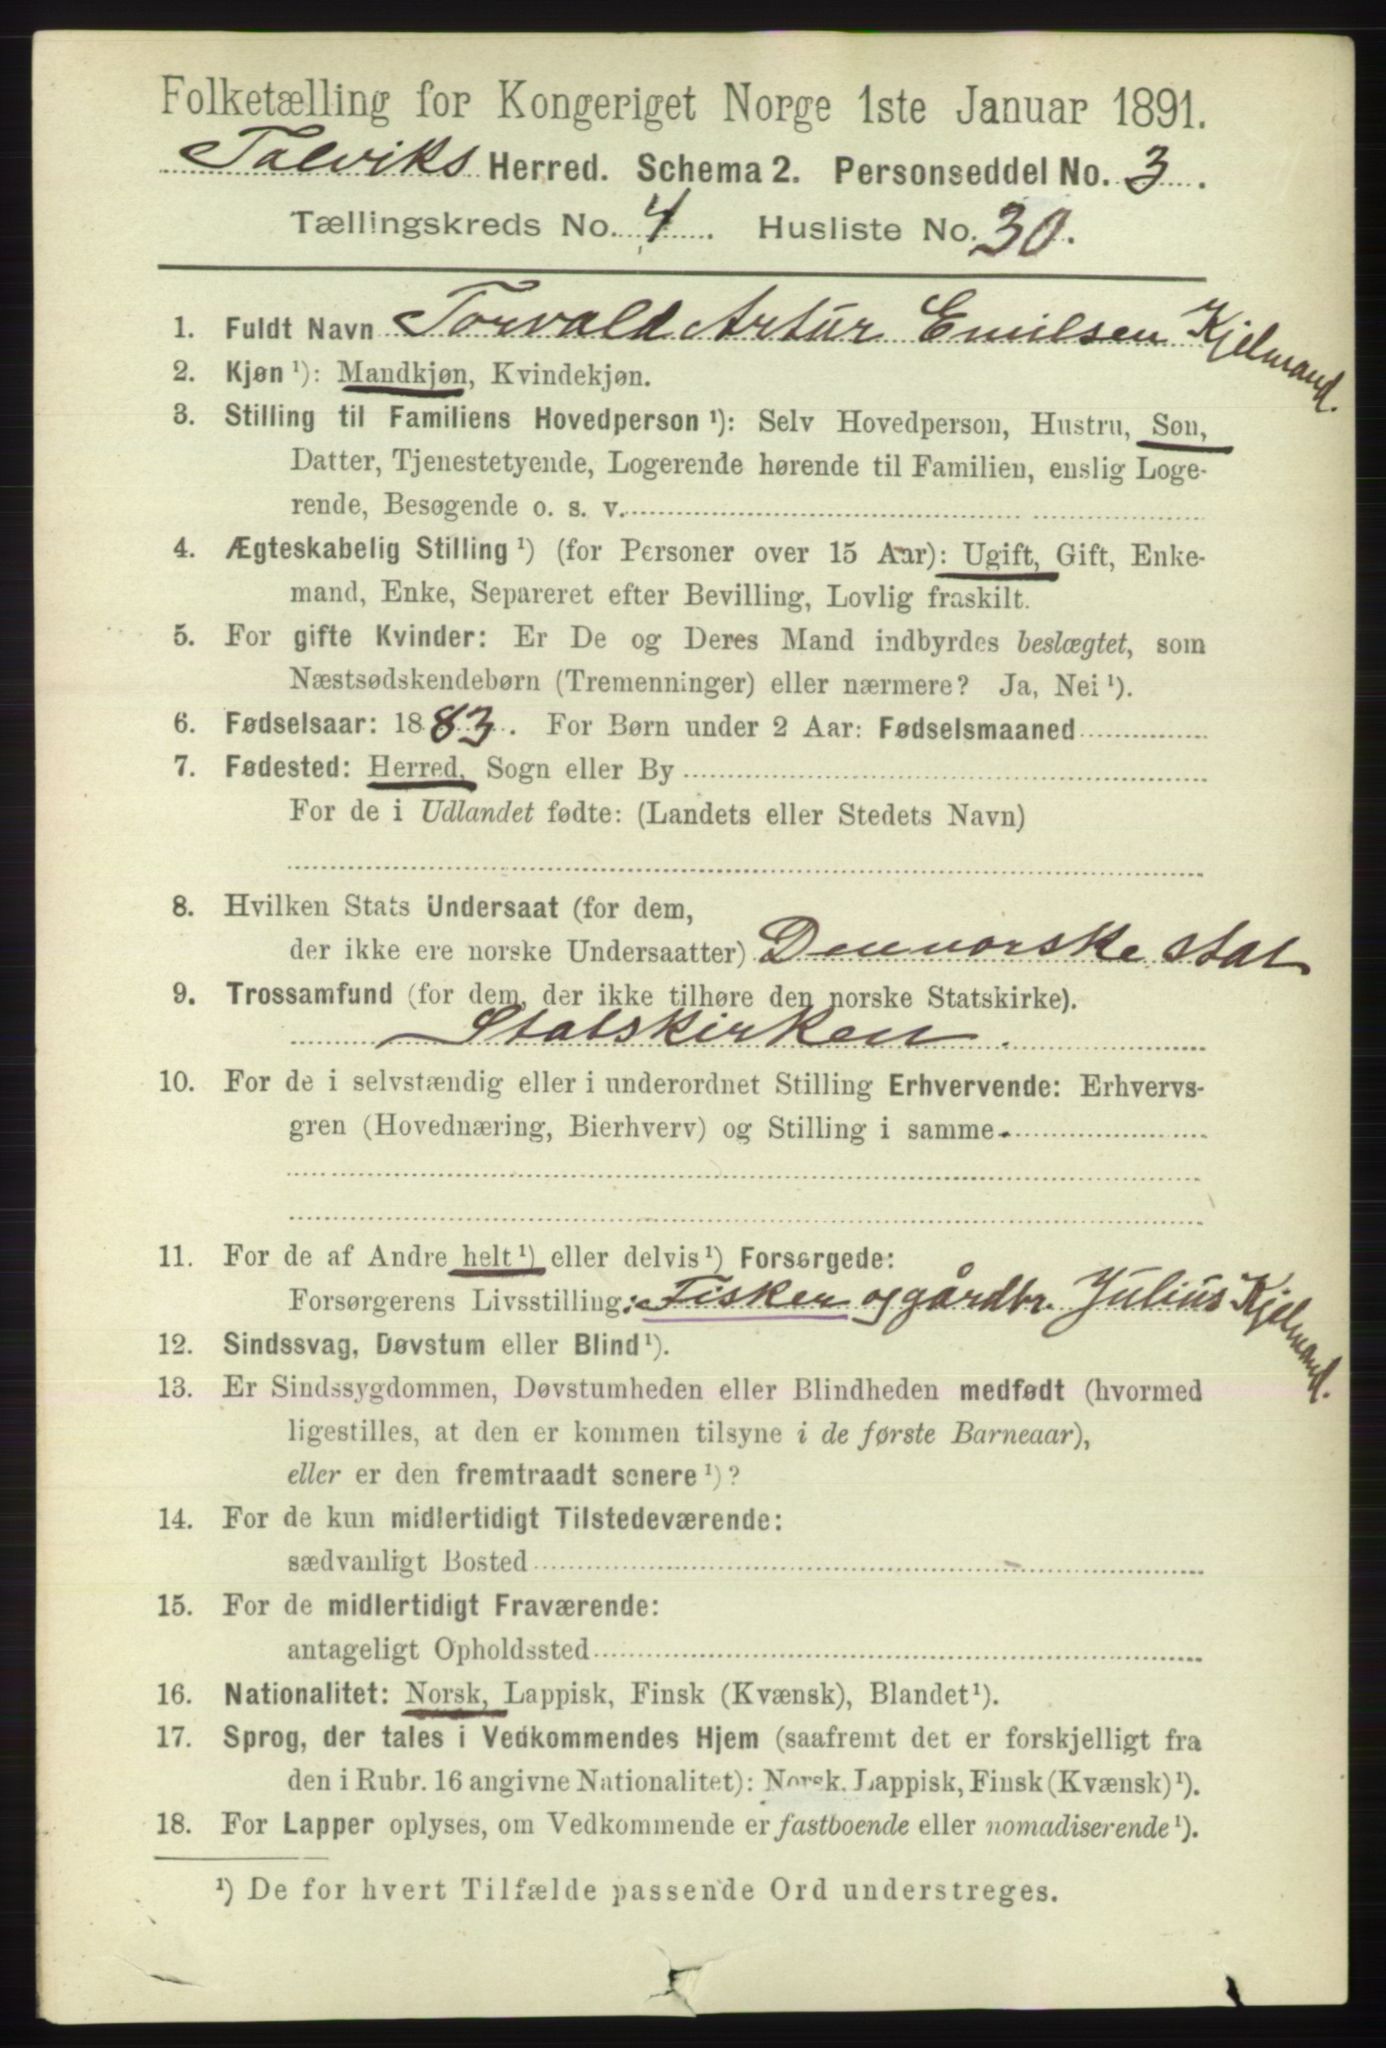 Folketælling for Kongeriget Norge 1ste Januar 1891.
Talviks Herred. Schema 2. Personseddel No. 3.
Tællingskreds No. 4. Husliste No. 30.
1. Fuldt Navn Torvald Artur Emilsen Kjelmand.
2. Kjøn ¹): Mandkjøn, Kvindekjøn.
3. Stilling til Familiens Hovedperson ¹): Selv Hovedperson, Hustru, Søn,
Datter, Tjenestetyende, Logerende hørende til Familien, enslig Loge-
rende, Besøgende o. s. v.
4. Ægteskabelig Stilling ¹) (for Personer over 15 Aar): Ugift, Gift, Enke-
mand, Enke, Separeret efter Bevilling, Lovlig fraskilt.
5. For gifte Kvinder: Er De og Deres Mand indbyrdes beslægtet, som
Næstsødskendebørn (Tremenninger) eller nærmere? Ja, Nei ¹).
6. Fødselsaar: 1883. For Børn under 2 Aar: Fødselsmaaned
7. Fødested: Herred, Sogn eller By
For de i Udlandet fødte: (Landets eller Stedets Navn)
8. Hvilken Stats Undersaat (for dem,
der ikke ere norske Undersaatter) Den norske stat
9. Trossamfund (for dem, der ikke tilhøre den norske Statskirke).
Statskirken.
10. For de i selvstændig eller i underordnet Stilling Erhvervende: Erhvervs-
gren (Hovednæring, Bierhverv) og Stilling i samme
11. For de af Andre helt ¹) eller delvis ¹) Forsørgede:
Forsørgerens Livsstilling: Fisker og gårdbr. Julius Kjelmand.
12. Sindssvag, Døvstum eller Blind ¹).
13. Er Sindssygdommen, Døvstumheden eller Blindheden medfødt (hvormed
ligestilles, at den er kommen tilsyne i de første Barneaar),
eller er den fremtraadt senere ¹)?
14. For de kun midlertidigt Tilstedeværende:
sædvanligt Bosted
15. For de midlertidigt Fraværende:
antageligt Opholdssted
16. Nationalitet: Norsk, Lappisk, Finsk (Kvænsk), Blandet ¹).
17. Sprog, der tales i Vedkommendes Hjem (saafremt det er forskjelligt fra
den i Rubr. 16 angivne Nationalitet): Norsk, Lappisk, Finsk (Kvænsk) ¹).
18. For Lapper oplyses, om Vedkommende er fastboende eller nomadiserende ¹).
¹) De for hvert Tilfælde passende Ord understreges.